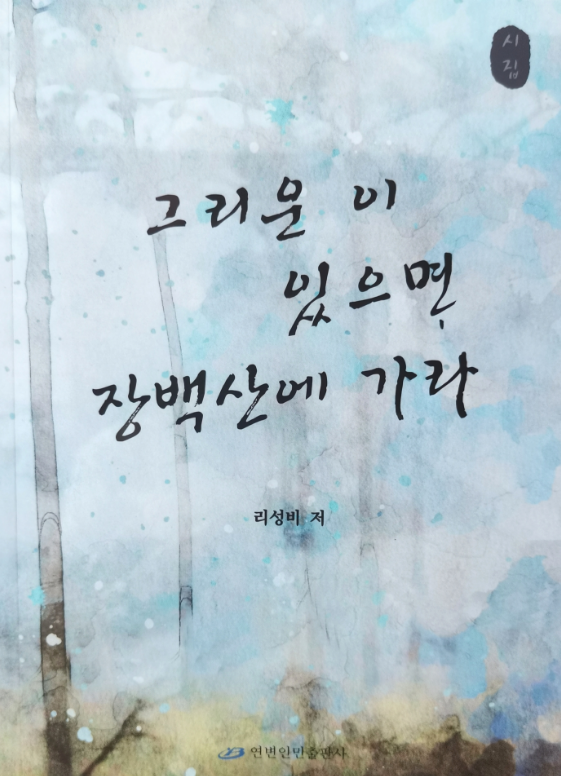 시
집
그리운 이
있으면
장백산에 가라
리성비 저
연변인민출판사